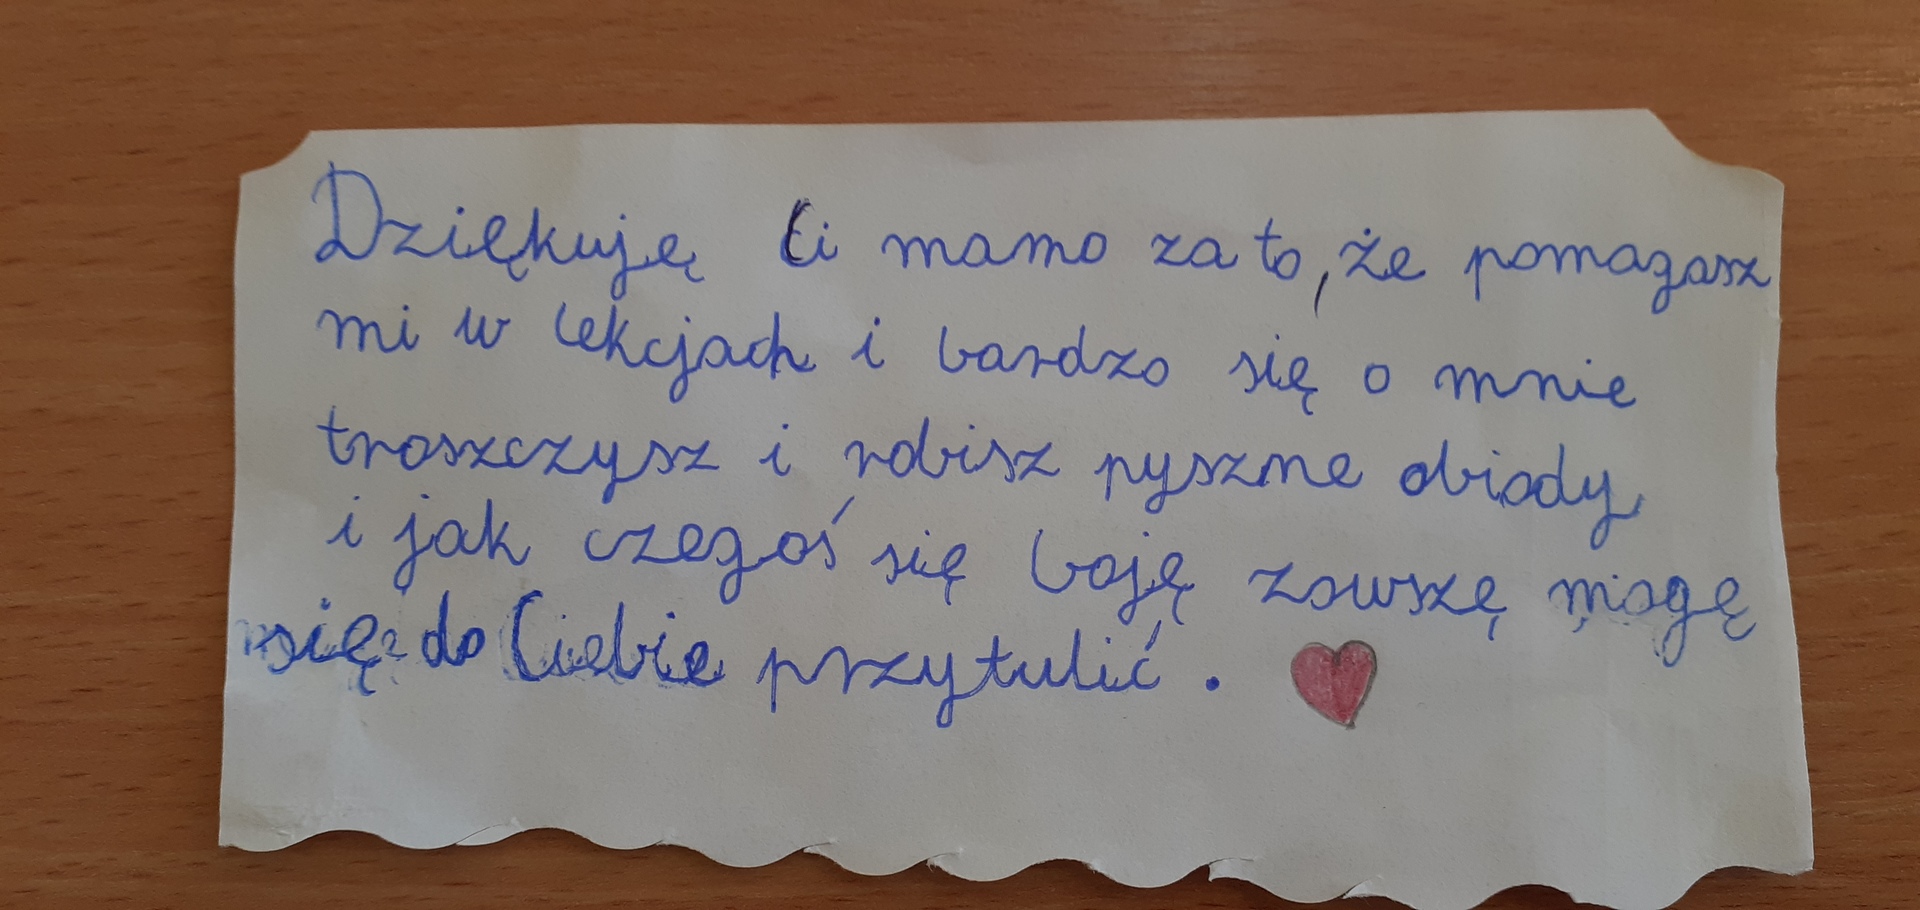 Dziękuję Ci mamo za to, że pomagasz
mi w lekcjach i bardzo się o mnie
troszczysz i robisz pyszne obiady
i jak czegoś się boję zawszę mogę
się do Ciebie przytulić.